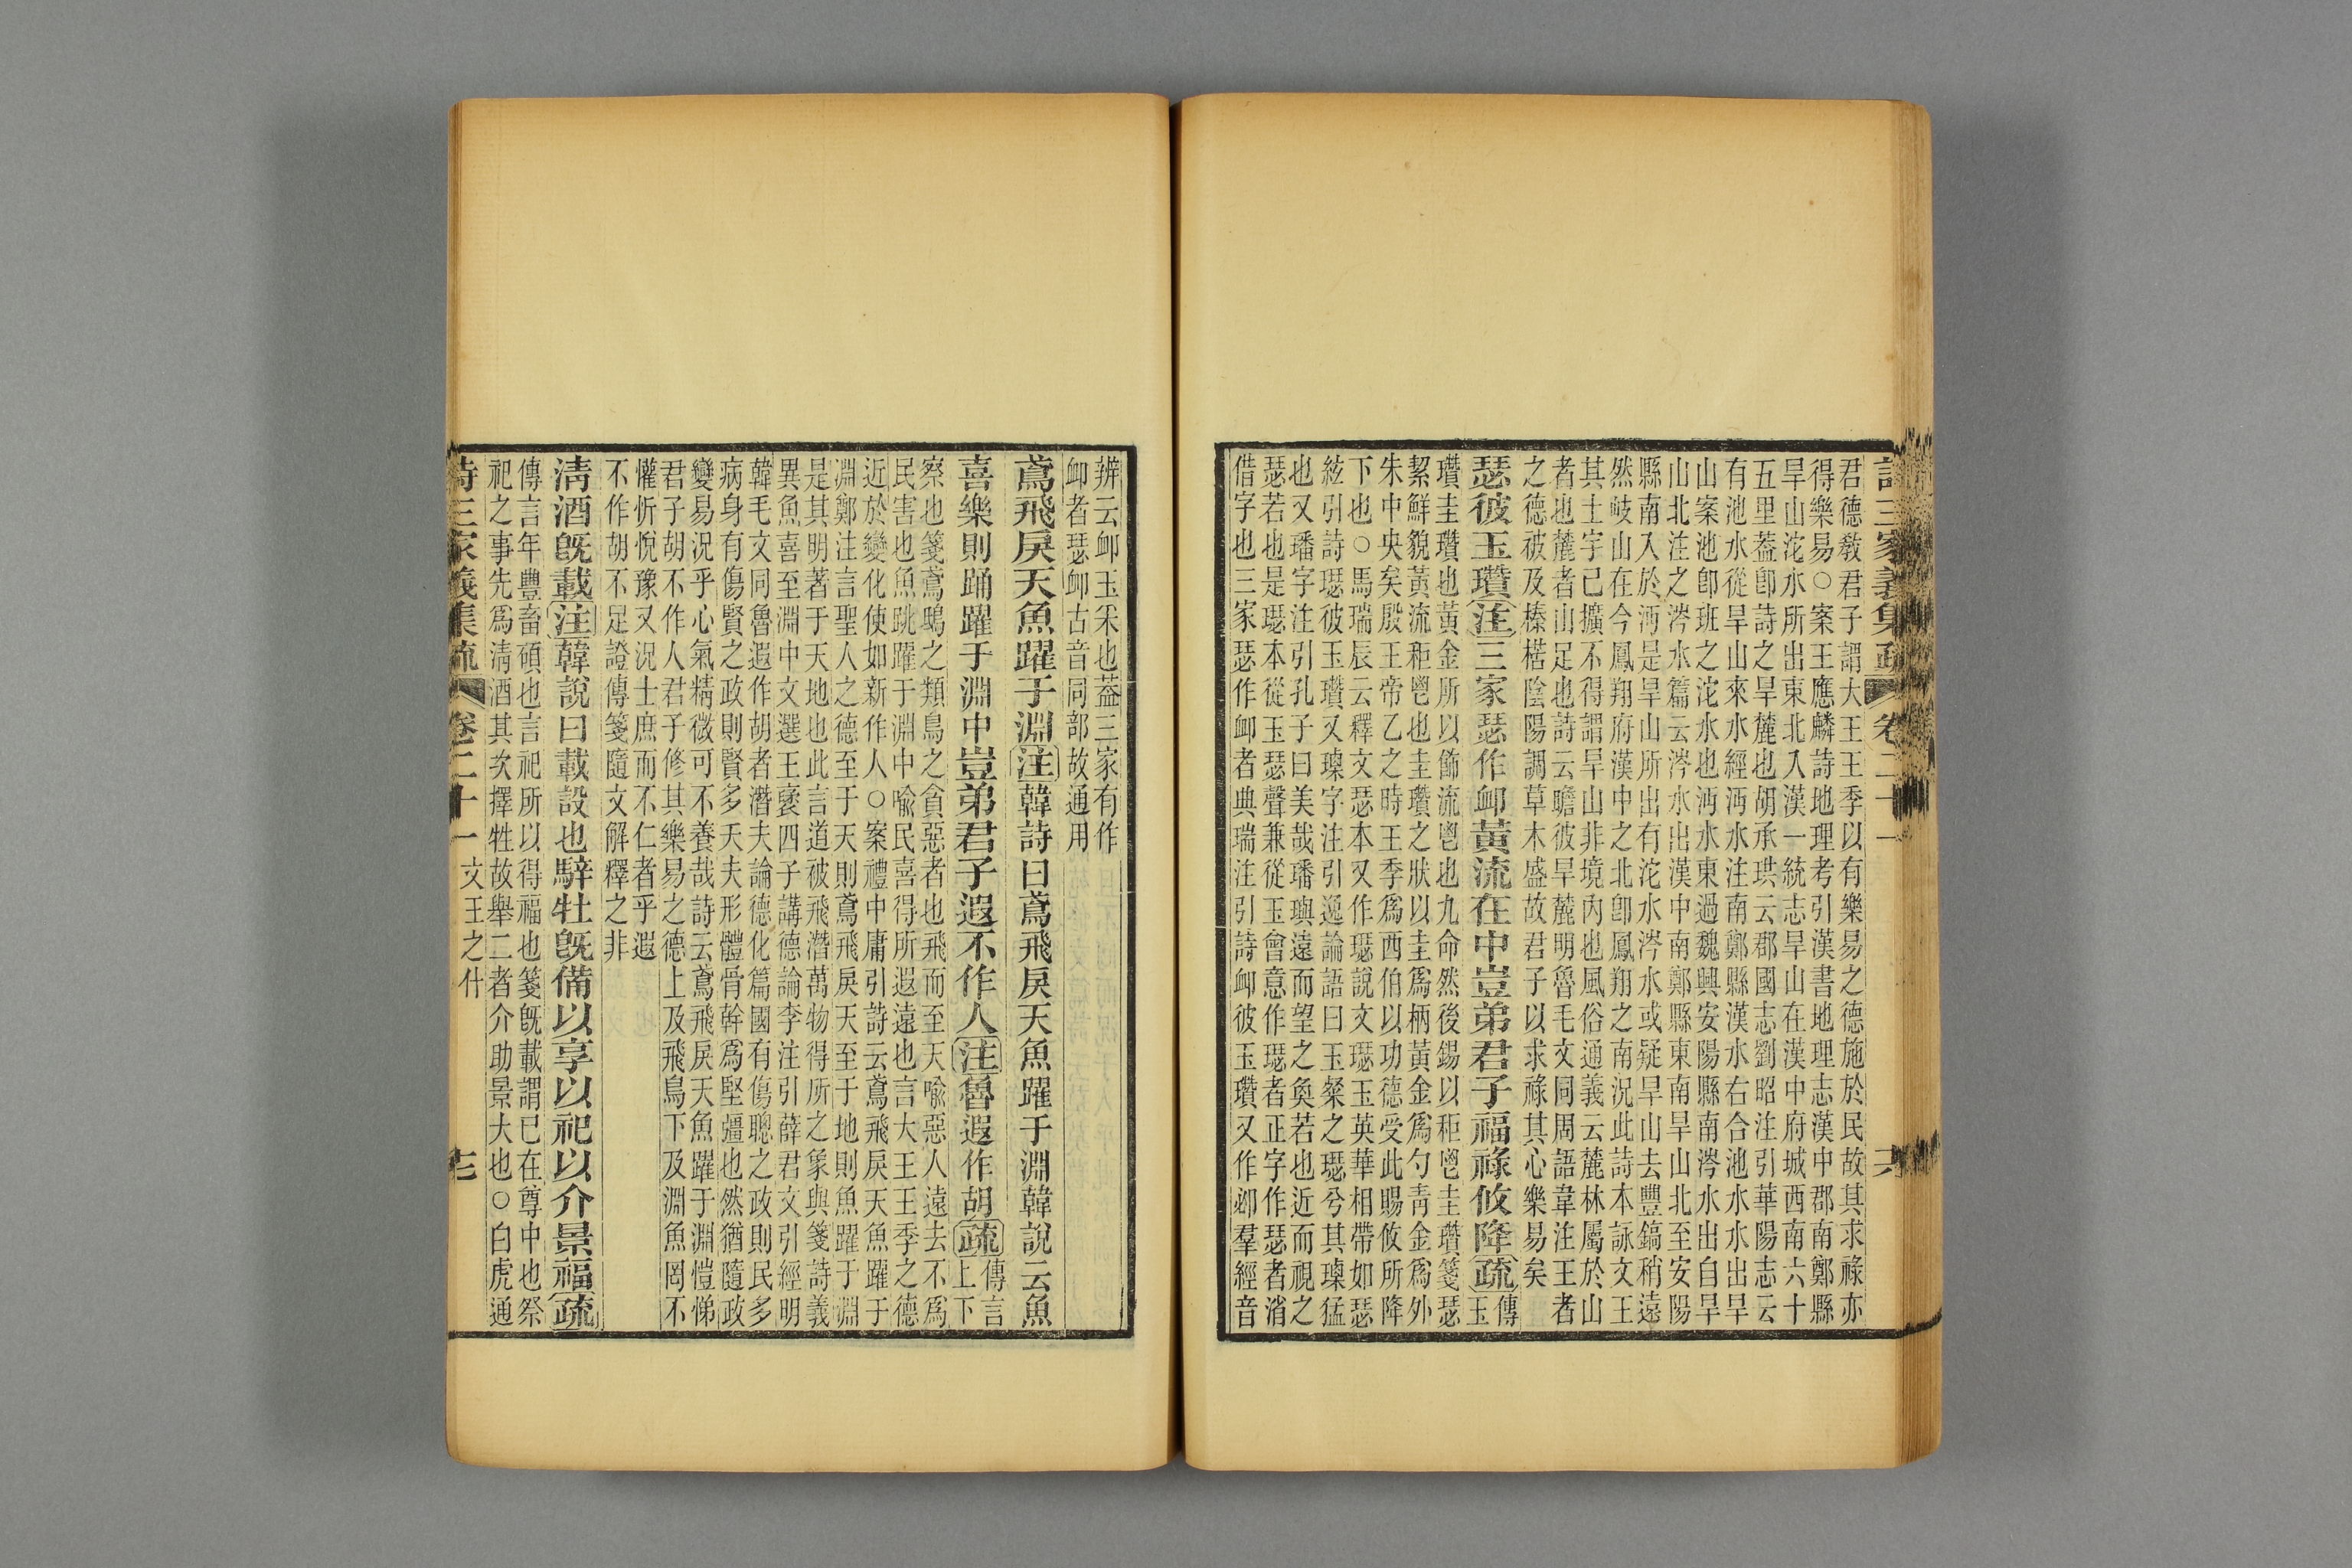 詩三家義集疏 卷二十一 六
君德敎君子謂大王王季以有樂易之德施於民故其求祿亦
得樂易○案王應麟詩地理考引漢書地理志漢中郡南鄭縣
旱山沱水所出東北入漢一統志旱山在漢中府城西南六十
五里葢卽詩之旱麓也胡承珙云郡國志劉昭注引華陽志云
有池水從旱山來水經沔水注南鄭縣漢水右合池水水出旱
山案池卽班之沱水也沔水東過魏興安陽縣南涔水出自旱
山北注之涔水篇云涔水出漢中南鄭縣東南旱山北至安陽
縣南入於沔是旱山所出有沱水涔水或疑旱山去豐鎬稍遠
然岐山在今鳳翔府漢中之北卽鳳翔之南況此詩本詠文王
其士宇已擴不得謂旱山非境內也風俗通義云麓林屬於山
者也麓者山足也詩云瞻彼旱麓明魯毛文同周語韋注王者
之德被及榛楛陰陽調草木盛故君子以求祿其心樂易矣
瑟彼玉瓚注三家瑟作卹黃流在中豈弟君子福祿攸降疏傳玉
瓚圭瓚也黃金所以飾流鬯也九命然後錫以秬鬯圭瓚箋瑟
絜鮮貌黃流秬鬯也圭瓚之狀以圭爲柄黃金爲勺靑金爲外
朱中央矣殷王帝乙之時王季爲西伯以功德受此賜攸所降
下也○馬瑞辰云釋文瑟本又作璱說文璱玉英華相帶如瑟
絃引詩璱彼玉瓚又瑮字注引逸論語曰玉粲之璱兮其瑮猛
也又璠字注引孔子曰美哉璠璵遠而望之奐若也近而視之
瑟若也是璱本從玉瑟聲兼從玉會意作璱者正字作瑟者消
借字也三家瑟作卹者典瑞注引詩卹彼玉瓚又作卹羣經音
辨云卹玉采也葢三家有作
卹者瑟卹古音同部故通用
鳶飛戾天魚躍于淵注韓詩曰鳶飛戾天魚躍于淵韓說云魚
喜樂則踊躍于淵中豈弟君子遐不作人注魯遐作胡疏傳言上下
察也箋鳶鴟之類鳥之貪惡者也飛而至天喻惡人遠去不爲
民害也魚跳躍于淵中喻民喜得所遐遠也言大王王季之德
近於變化使如新作人○案禮中庸引詩云鳶飛戾天魚躍于
淵鄭注言聖人之德至于天則鳶飛戾天至于地則魚躍于淵
是其明著于天地也此言道被飛潛萬物得所之象與箋詩義
異魚喜至淵中文選王襃四子講德論李注引薛君文引經明
韓毛文同魯遐作胡者潛夫論德化篇國有傷聰之政則民多
病身有傷賢之政則賢多夭夫形體骨幹爲堅彊也然猶隨政
變易況乎心氣精微可不養哉詩云鳶飛戾天魚躍于淵愷悌
君子胡不作人君子修其樂易之德上及飛鳥下及淵魚罔不
懽忻悅豫又況士庶而不仁者乎遐
不作胡不足證傳箋隨文解釋之非
淸酒旣載注韓說曰載設也騂牡旣備以享以祀以介景福疏
傳言年豐畜碩也言祀所以得福也箋旣載謂已在尊中也祭
祀之事先爲淸酒其次擇牲故舉二者介助景大也○白虎通
詩三家義集疏 卷二十一 文王之什 七